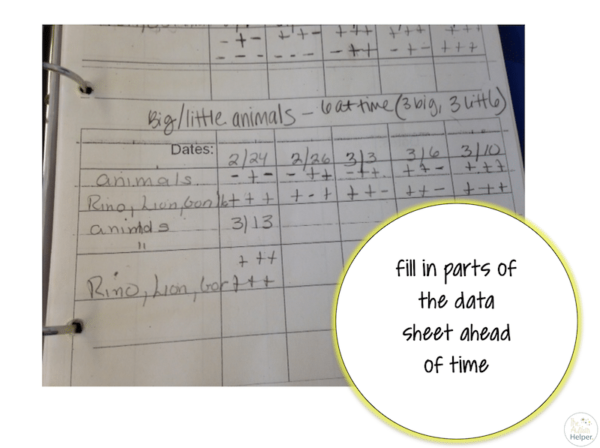 - - - - - - - + + - + - + + +
Big/little animals - 6 at time (3 big, 3 little)
Dates: 2/24 2/26 3/3 3/6 3/10
animals - + - - + + - + + + + - + + +
Rino, Lion, + + + + - + + + - + + - + - + +
animals 3/13
"
+ + +
Rino, Lion, Gor + + +
fill in parts of
the data
sheet ahead
of time
Helper